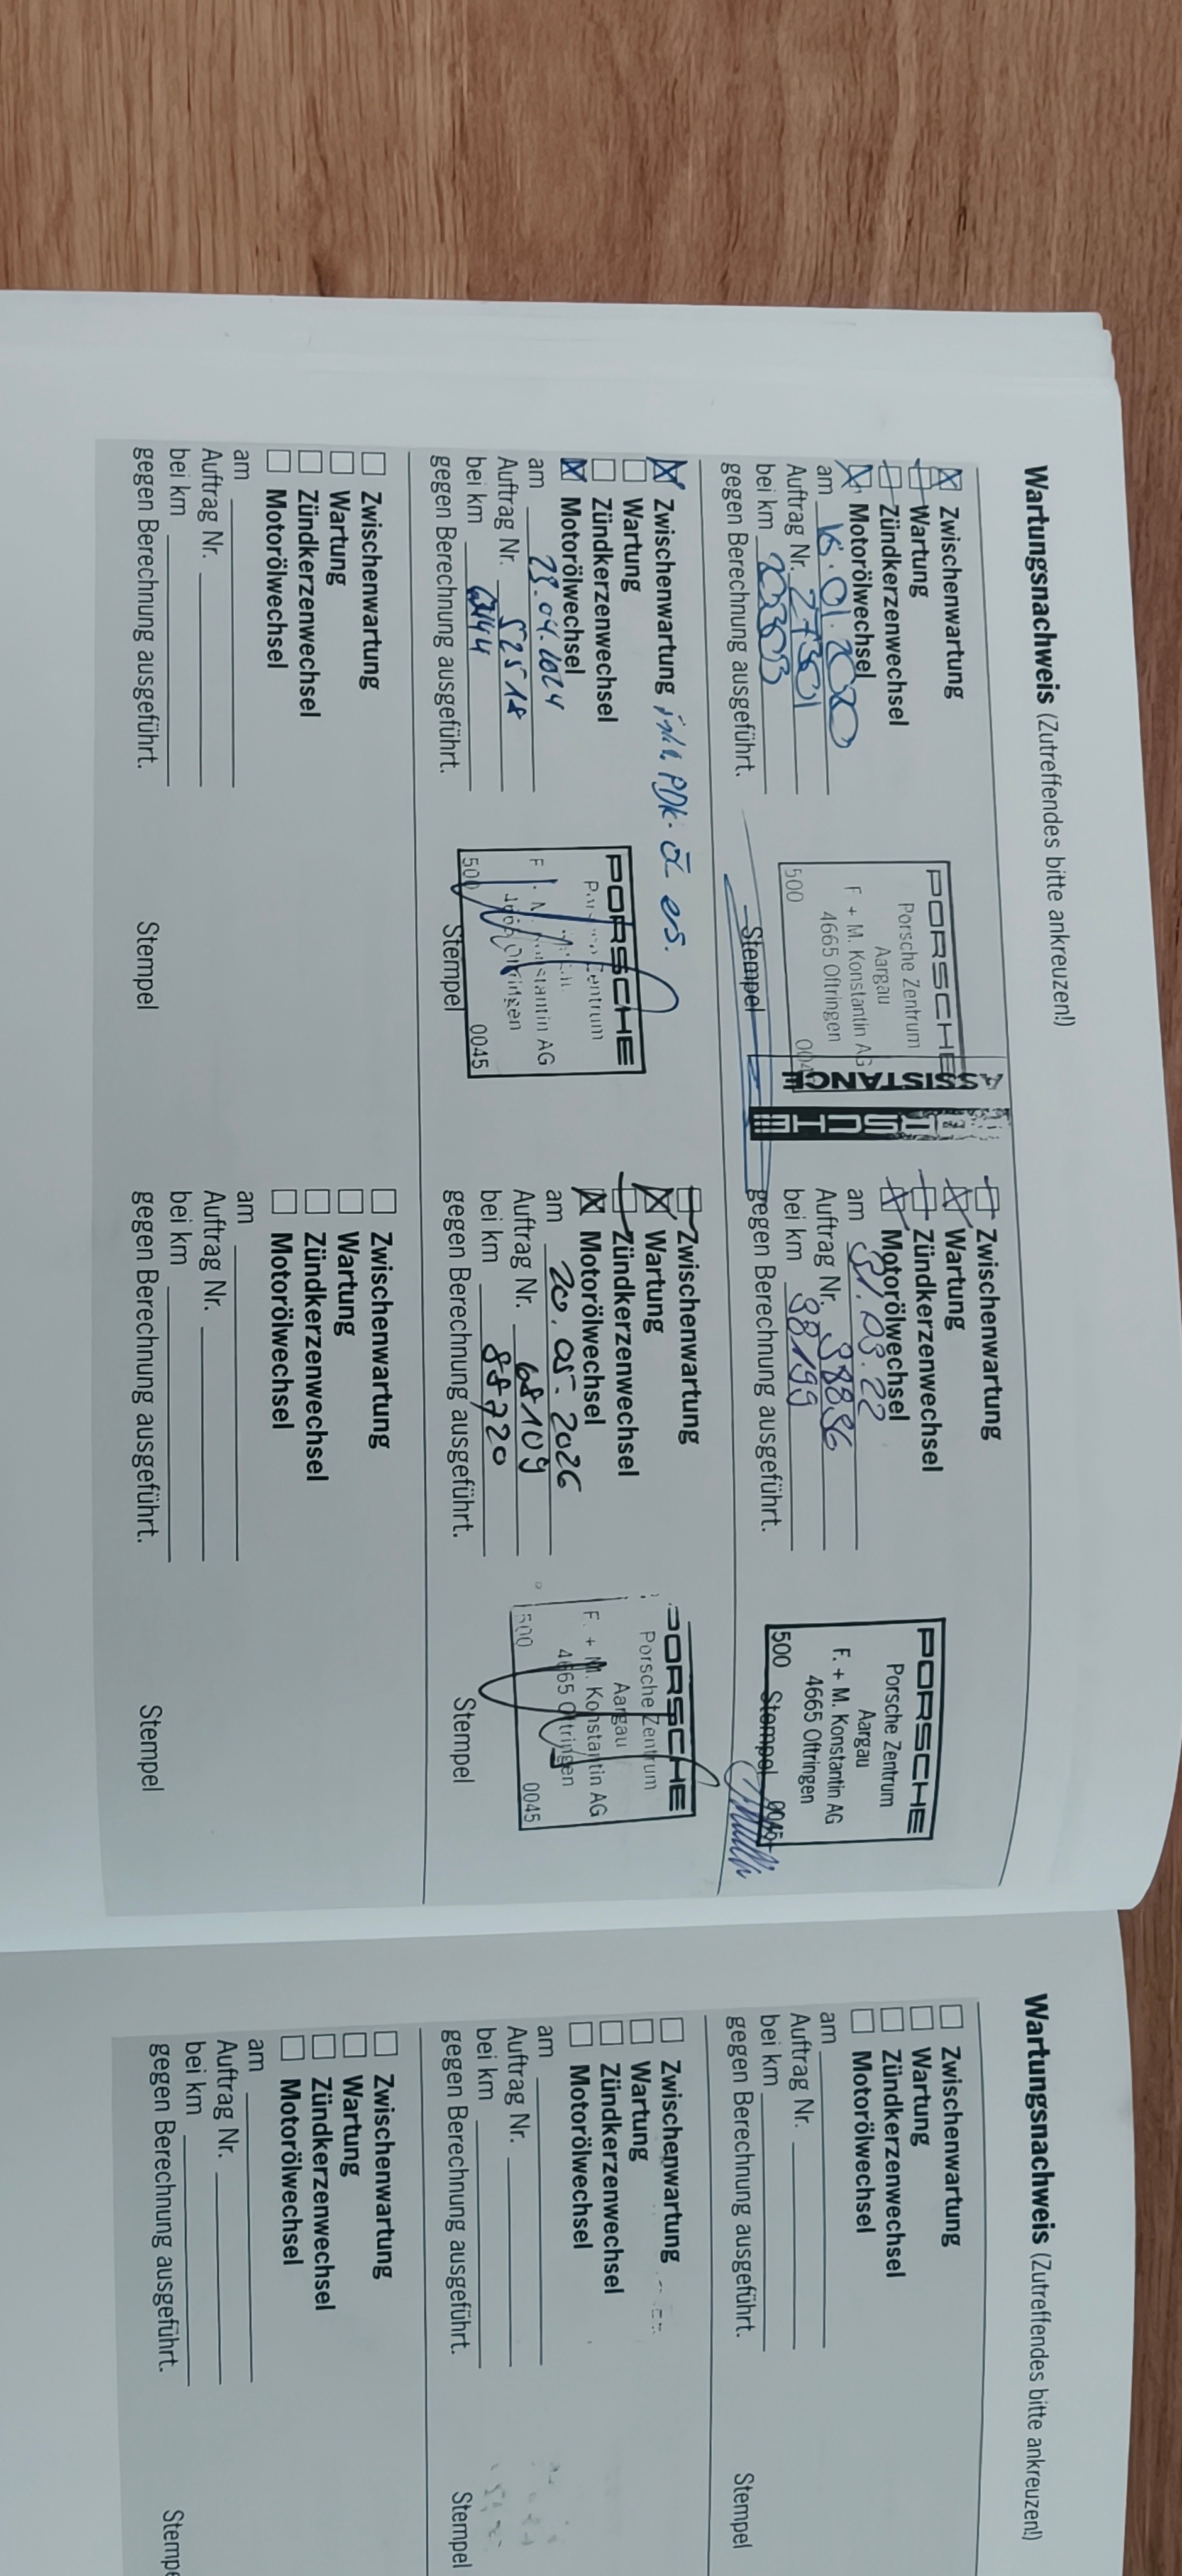 Wartungsnachweis (Zutreffendes bitte ankreuzen!)
Zwischenwartung
Wartung
Zündkerzenwechsel
Motorölwechsel
am 16.01.2020
Auftrag Nr.
bei km
gegen Berechnung ausgeführt.
PORSCHE
Porsche Zentrum
Aargau
F + M. Konstantin AG
4665 Oftringen
500
Stempel
ASSISTANCE
Zwischenwartung
Wartung
Zündkerzenwechsel
Motorölwechsel
am 31.03.22
Auftrag Nr. 38896
bei km 38199
gegen Berechnung ausgeführt.
PORSCHE
Porsche Zentrum
Aargau
F. + M. Konstantin AG
4665 Oftringen
500 0045
Stempel
Zwischenwartung inkl. PDK-Öl ers.
Wartung
Zündkerzenwechsel
Motorölwechsel
am 23.04.2024
Auftrag Nr. 52518
bei km
gegen Berechnung ausgeführt.
PORSCHE
Zentrum
AG
500 0045
Stempel
Zwischenwartung
Wartung
Zündkerzenwechsel
Motorölwechsel
am 20.05.2026
Auftrag Nr. 68109
bei km 88720
gegen Berechnung ausgeführt.
PORSCHE
Porsche Zentrum
Aargau
F. + M. Konstantin AG
4665 Oftringen
500 0045
Stempel
Zwischenwartung
Wartung
Zündkerzenwechsel
Motorölwechsel
am
Auftrag Nr.
bei km
gegen Berechnung ausgeführt.
Stempel
Zwischenwartung
Wartung
Zündkerzenwechsel
Motorölwechsel
am
Auftrag Nr.
bei km
gegen Berechnung ausgeführt.
Stempel
Wartungsnachweis (Zutreffendes bitte ankreuzen!)
Zwischenwartung
Wartung
Zündkerzenwechsel
Motorölwechsel
am
Auftrag Nr.
bei km
gegen Berechnung ausgeführt.
Stempel
Zwischenwartung
Wartung
Zündkerzenwechsel
Motorölwechsel
am
Auftrag Nr.
bei km
gegen Berechnung ausgeführt.
Stempel
Zwischenwartung
Wartung
Zündkerzenwechsel
Motorölwechsel
am
Auftrag Nr.
bei km
gegen Berechnung ausgeführt.
Stempe